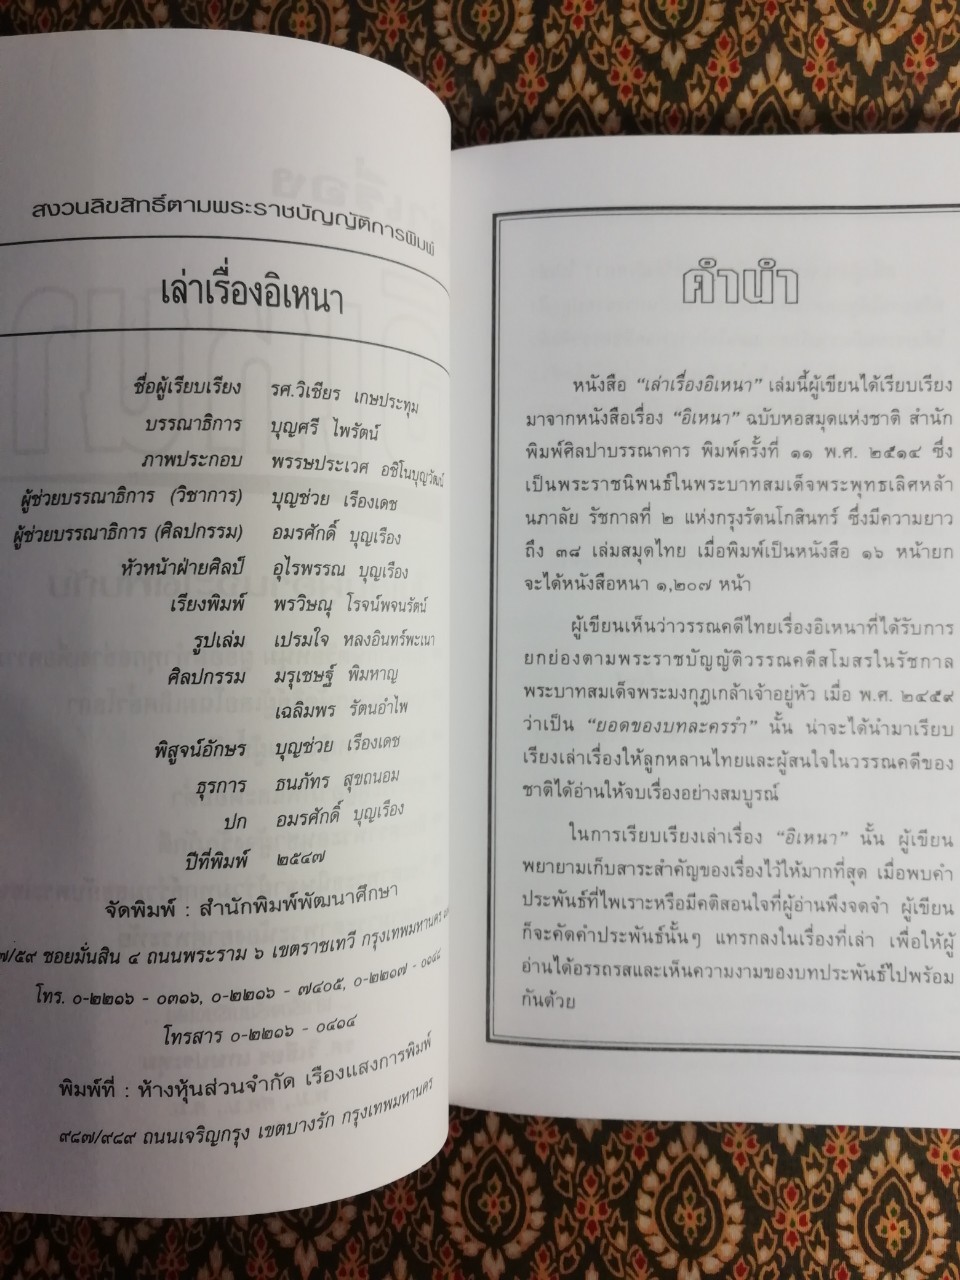 สงวนลิขสิทธิ์ตามพระราชบัญญัติการพิมพ์
เล่าเรื่องอิเหนา
ชื่อผู้เรียบเรียง รศ.วิเชียร เกษประทุม
บรรณาธิการ บุญศรี ไพรัตน์
ภาพประกอบ พรรษประเวศ อชิโนบุญวัฒน์
ผู้ช่วยบรรณาธิการ (วิชาการ) บุญช่วย เรืองเดช
ผู้ช่วยบรรณาธิการ (ศิลปกรรม) อมรศักดิ์ บุญเรือง
หัวหน้าฝ่ายศิลป์ อุไรพรรณ บุญเรือง
เรียงพิมพ์ พรวิษณุ โรจน์พจนรัตน์
รูปเล่ม เปรมใจ หลงอินทร์พะเนา
ศิลปกรรม มรุเชษฐ์ พิมหาญ
เฉลิมพร รัตนอำไพ
พิสูจน์อักษร บุญช่วย เรืองเดช
ธุรการ ธนภัทร สุขถนอม
ปก อมรศักดิ์ บุญเรือง
ปีที่พิมพ์ ๒๕๔๗
จัดพิมพ์ : สำนักพิมพ์พัฒนาศึกษา
๗/๕๙ ซอยมั่นสิน ๔ ถนนพระราม ๖ เขตราชเทวี กรุงเทพมหานคร
โทร. ๐-๒๒๑๖ - ๐๓๑๖, ๐-๒๒๑๖ - ๗๔๐๕, ๐-๒๒๑๗ - ๐๑๔๘
โทรสาร ๐-๒๒๑๖ - ๐๔๑๔
พิมพ์ที่ : ห้างหุ้นส่วนจำกัด เรืองแสงการพิมพ์
๙๘๗/๙๘๙ ถนนเจริญกรุง เขตบางรัก กรุงเทพมหานคร
คำนำ
หนังสือ “เล่าเรื่องอิเหนา” เล่มนี้ผู้เขียนได้เรียบเรียง
มาจากหนังสือเรื่อง “อิเหนา” ฉบับหอสมุดแห่งชาติ สำนัก
พิมพ์ศิลปาบรรณาคาร พิมพ์ครั้งที่ ๑๑ พ.ศ. ๒๕๑๔ ซึ่ง
เป็นพระราชนิพนธ์ในพระบาทสมเด็จพระพุทธเลิศหล้า
นภาลัย รัชกาลที่ ๒ แห่งกรุงรัตนโกสินทร์ ซึ่งมีความยาว
ถึง ๓๘ เล่มสมุดไทย เมื่อพิมพ์เป็นหนังสือ ๑๖ หน้ายก
จะได้หนังสือหนา ๑,๒๐๗ หน้า
ผู้เขียนเห็นว่าวรรณคดีไทยเรื่องอิเหนาที่ได้รับการ
ยกย่องตามพระราชบัญญัติวรรณคดีสโมสรในรัชกาล
พระบาทสมเด็จพระมงกุฎเกล้าเจ้าอยู่หัว เมื่อ พ.ศ. ๒๔๕๙
ว่าเป็น “ยอดของบทละครรำ” นั้น น่าจะได้นำมาเรียบ
เรียงเล่าเรื่องให้ลูกหลานไทยและผู้สนใจในวรรณคดีของ
ชาติได้อ่านให้จบเรื่องอย่างสมบูรณ์
ในการเรียบเรียงเล่าเรื่อง “อิเหนา” นั้น ผู้เขียน
พยายามเก็บสาระสำคัญของเรื่องไว้ให้มากที่สุด เมื่อพบคำ
ประพันธ์ที่ไพเราะหรือมีคติสอนใจที่ผู้อ่านพึงจดจำ ผู้เขียน
ก็จะคัดคำประพันธ์นั้นๆ แทรกลงในเรื่องที่เล่า เพื่อให้ผู้
อ่านได้อรรถรสและเห็นความงามของบทประพันธ์ไปพร้อม
กันด้วย